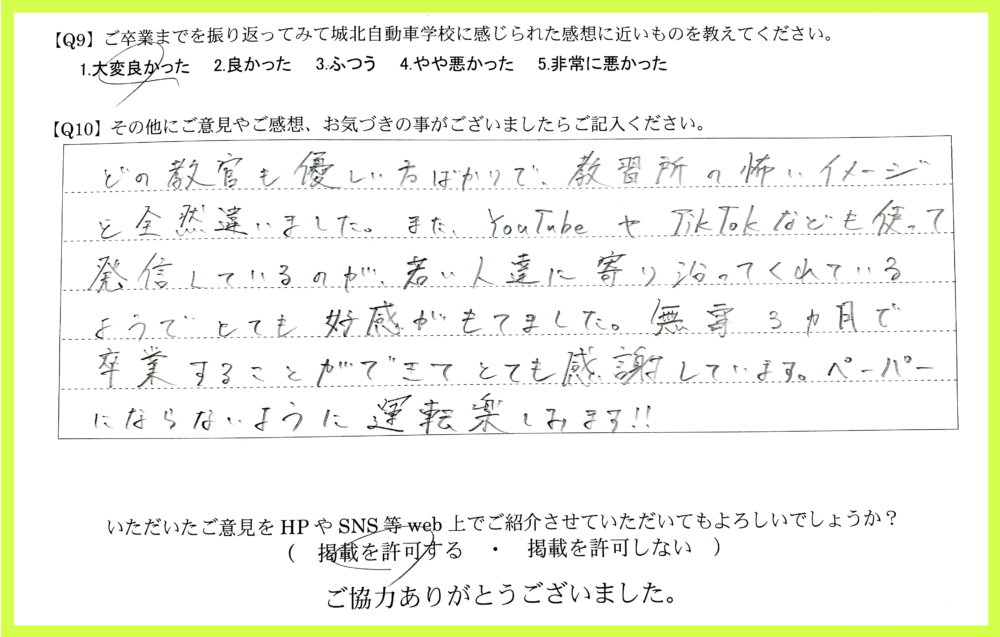 【Q9】ご卒業までを振り返ってみて城北自動車学校に感じられた感想に近いものを教えてください。
1.大変良かった　2.良かった　3.ふつう　4.やや悪かった　5.非常に悪かった
【Q10】その他にご意見やご感想、お気づきの事がございましたらご記入ください。
どの教官も優しい方ばかりで、教習所の怖いイメージ
と全然違いました。また、YouTubeやTikTokなども使って
発信しているのが、若い人達に寄り沿ってくれている
ようでとても好感がもてました。無事3ヵ月で
卒業することができてとても感謝しています。ペーパー
にならないように運転楽しみます!!
いただいたご意見をHPやSNS等web上でご紹介させていただいてもよろしいでしょうか？
（　掲載を許可する　・　掲載を許可しない　）
ご協力ありがとうございました。